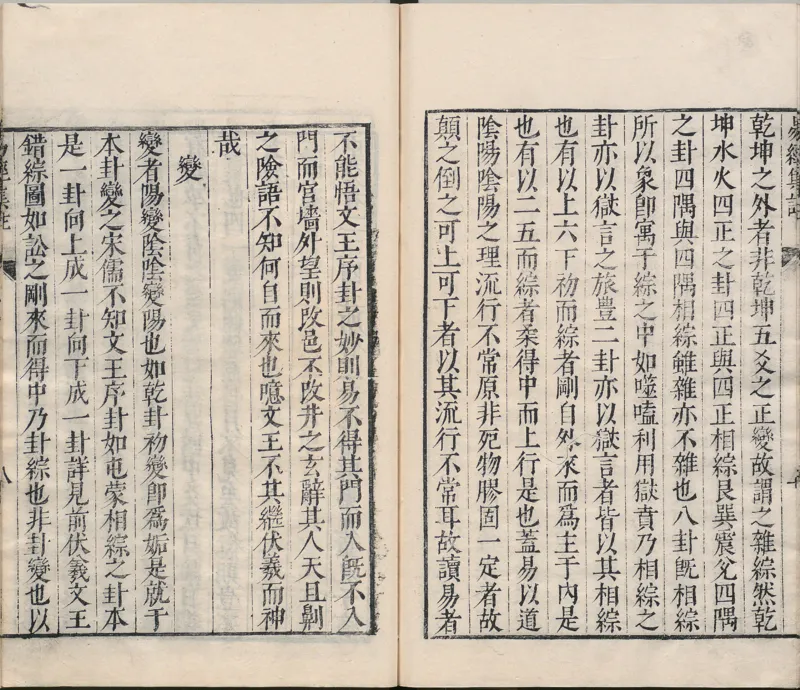 乾坤之外者非乾坤五爻之正變故謂之雜綜然乾
坤水火四正之卦四正與四正相綜艮巽震兌四隅
之卦四隅與四隅相綜雖雜亦不雜也八卦旣相綜
所以象卽寓于綜之中如噬嗑利用獄賁乃相綜之
卦亦以獄言之旅豐二卦亦以獄言者皆以其相綜
也有以上六下初而綜者剛自外來而爲主于內是
也有以二五而綜者柔得中而上行是也蓋易以道
陰陽陰陽之理流行不常原非死物膠固一定者故
顛之倒之可上可下者以其流行不常耳故讀易者
不能悟文王序卦之妙則易不得其門而入旣不入
門而宮墻外望則改邑不改井之玄辭其人天且劓
之險語不知何自而來也噫文王不其繼伏羲而神
哉
變
變者陽變陰陰變陽也如乾卦初變卽爲姤是就于
本卦變之宋儒不知文王序卦如屯蒙相綜之卦本
是一卦向上成一卦向下成一卦詳見前伏羲文王
錯綜圖如訟之剛來而得中乃卦綜也非卦變也以